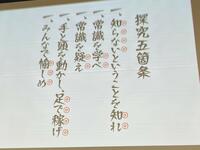 探究五箇条
一、知らないということを知れ
一、常識を学べ
一、常識を疑え
一、手と頭を動かし、足で稼げ
一、みんなで愉しめ